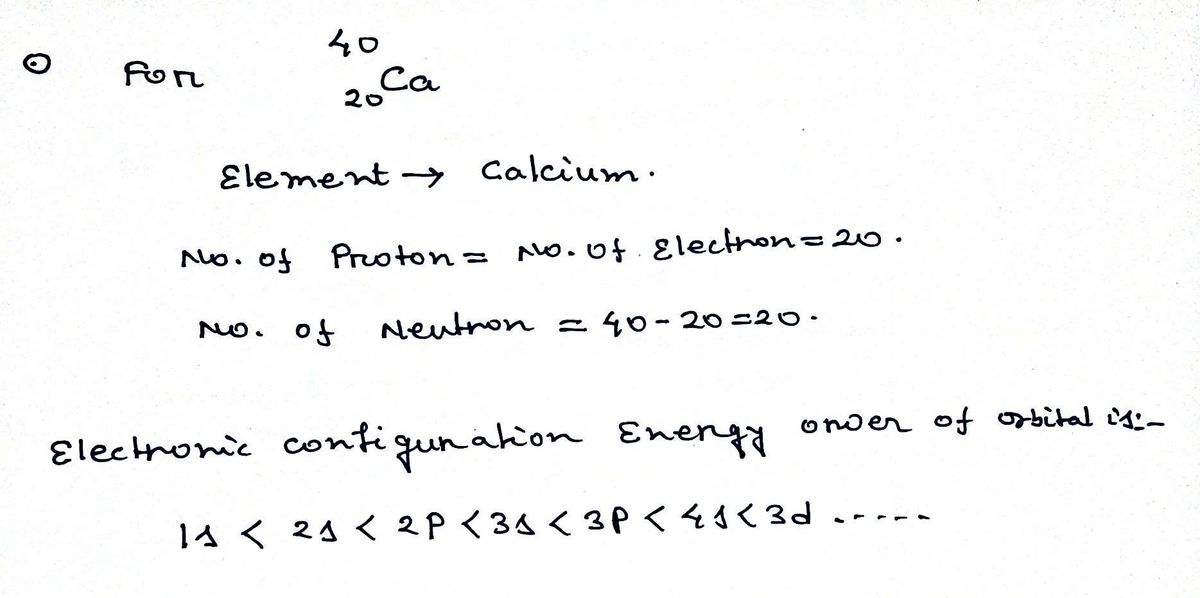 For ⁴⁰₂₀Ca
Element → Calcium.
No. of Proton = No. of Electron = 20.
No. of Neutron = 40 - 20 = 20.
Electronic configuration Energy order of orbital is:-
1s < 2s < 2p < 3s < 3p < 4s < 3d .-----